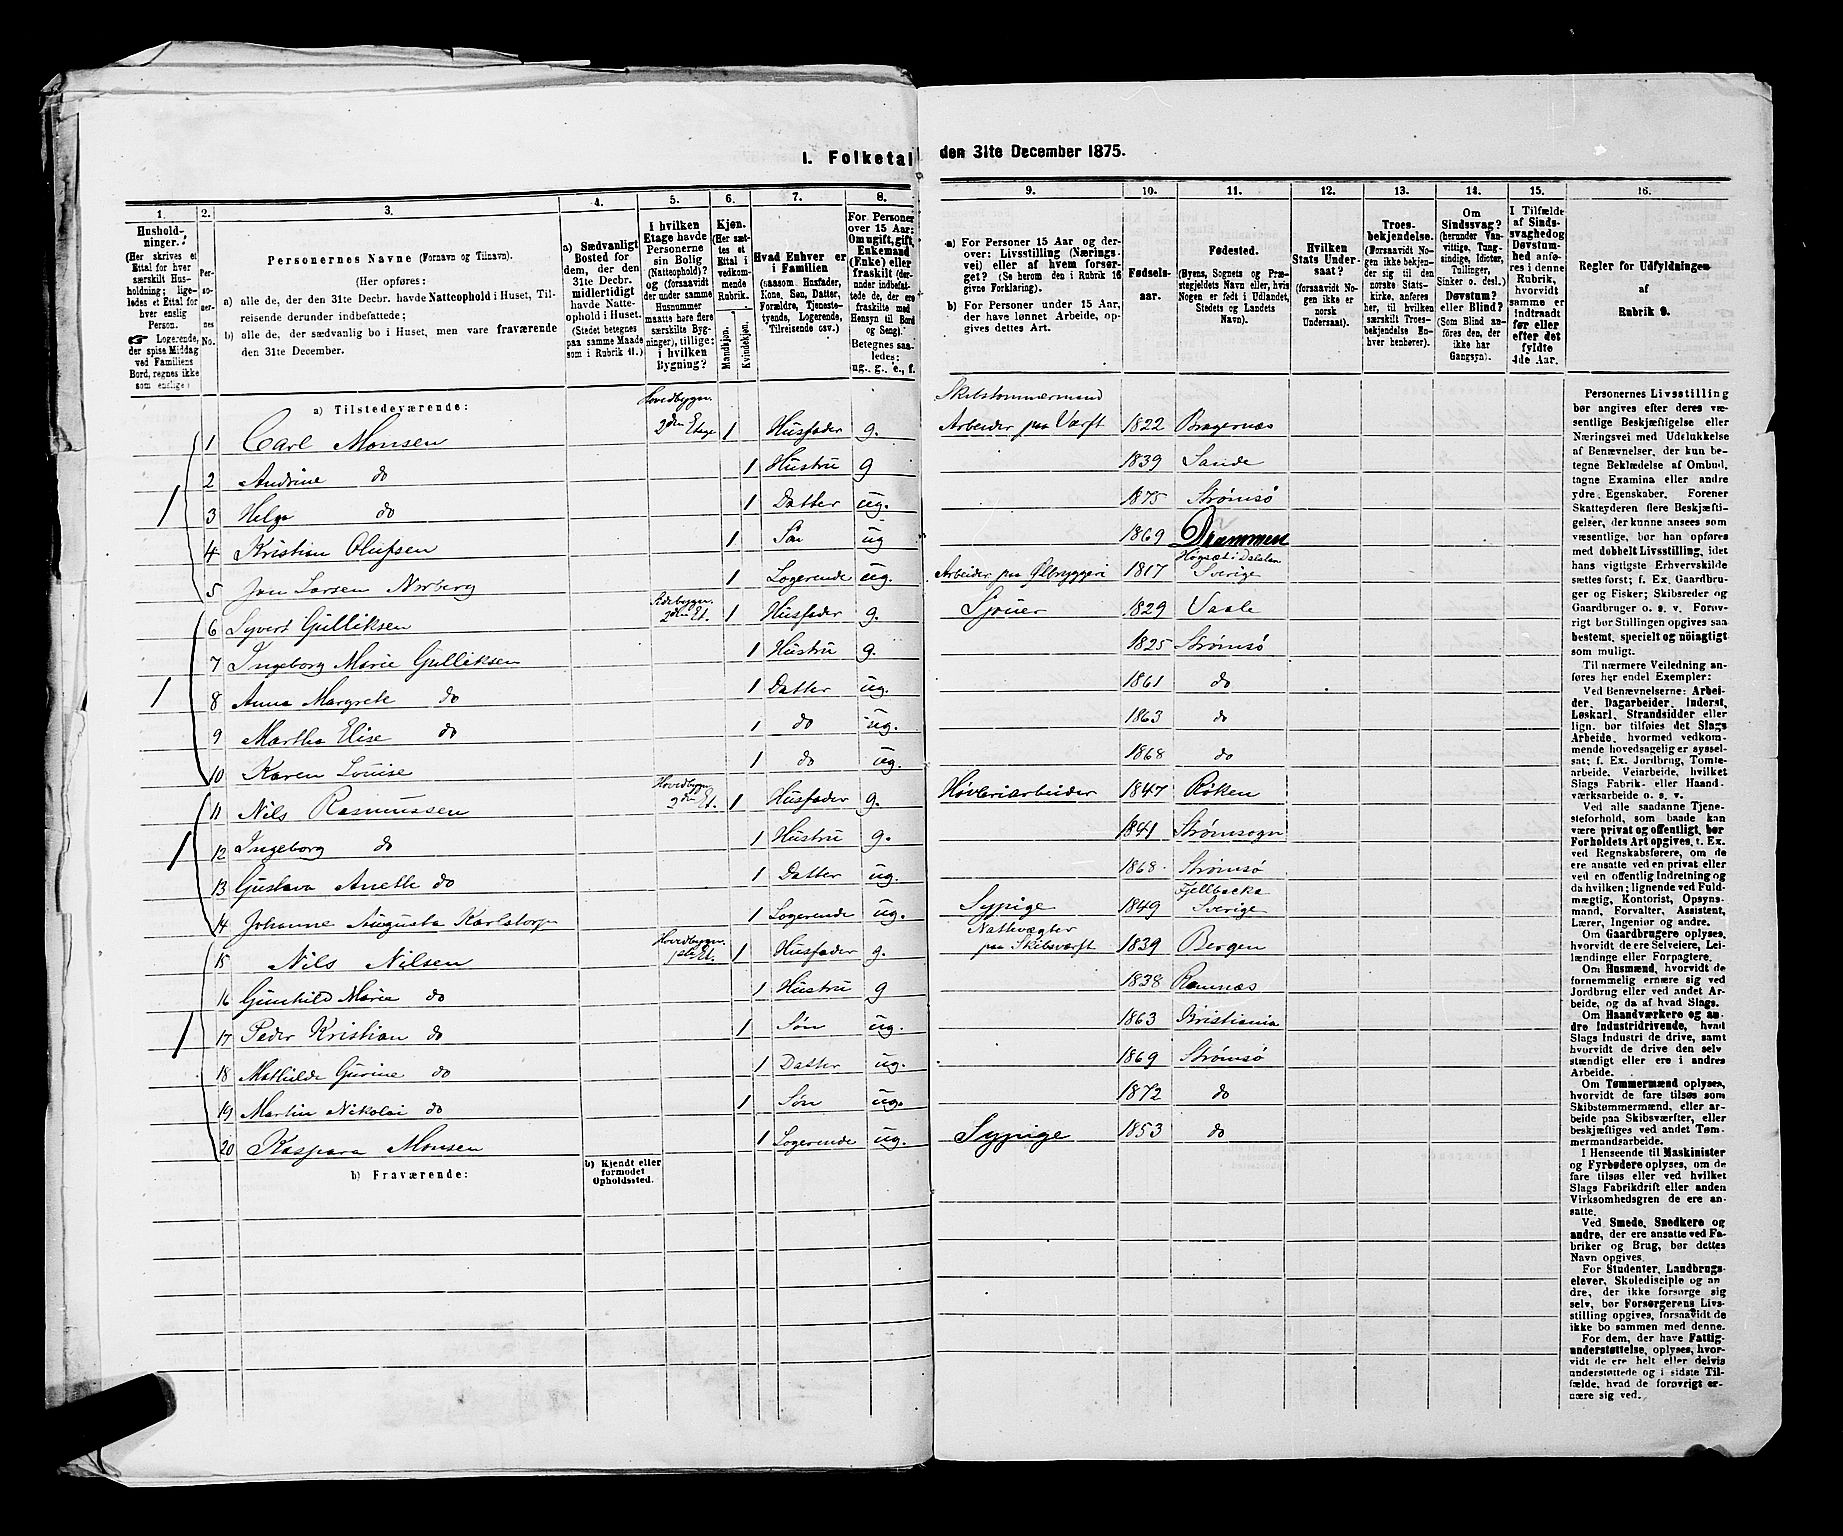 I. Folketal den 31te December 1875.
1. 2. 3. 4. 5. 6. 7. 8. 9. 10. 11. 12. 13. 14. 15. 16.
Hushold-
ninger.
(Her skrives et
Ettal for hver
særskilt Hus-
holdning; lige-
ledes et Ettal for
hver enslig
Person.
☞ Logerende,
der spise Middag
ved Familiens
Bord, regnes ikke
som enslige)
Per-
so-
ner-
nes
No.
Personernes Navne (Fornavn og Tilnavn).
(Her opføres:
a) alle de, der den 31te Decbr. havde Natteophold i Huset, Til-
reisende derunder indbefattede;
b) alle de, der sædvanlig bo i Huset, men vare fraværende
den 31te December.
a) Sædvanligt
Bosted for
dem, der den
31te Decbr.
midlertidigt
havde Natte-
ophold i Huset.
(Stedet betegnes
paa samme Maade
som i Rubrik 11.)
I hvilken
Etage havde
Personerne
sin Bolig
(Natteophold)?
og (forsaavidt
der under samme
Husnummer
maatte høre flere
særskilte Byg-
ninger), tillige:
i hvilken
Bygning?
Kjøn.
(Her sæt-
tes et
Ettal i
vedkom-
mende
Rubrik.
Mandkjøn.
Kvindekjøn.
Hvad Enhver er
i Familien
(saasom Husfader,
Kone, Søn, Datter,
Forældre, Tjeneste-
tyende, Logerende,
Tilreisende osv.)
For Personer
over 15 Aar:
Om ugift, gift,
Enkemand
(Enke) eller
fraskilt (der-
under indbefat-
tede de, der ere
fraskilte med
Hensyn til Bord
og Seng).
Betegnes saa-
ledes:
ug., g., e., f.
a) For Personer 15 Aar og der-
over: Livsstilling (Nærings-
vei) eller af hvem forsør-
get? (Se herom den i Rubrik 16
givne Forklaring).
b) For Personer under 15 Aar,
der have lønnet Arbeide, op-
gives dettes Art.
Fødsels-
aar.
Fødested.
(Byens, Sognets og Præ-
stegjeldets Navn eller, hvis
Nogen er født i Udlandet,
Stedets og Landets
Navn).
Hvilken
Stats Under-
saat?
(forsaavidt No-
gen ikke er
norsk
Undersaat).
Troes-
bekjendelse.
(Forsaavidt No-
gen ikke bekjen-
der sig til den
norske Stats-
kirke, anføres
her, til hvilken
særskilt Troes-
bekjendelse En-
hver henhører).
Om
Sindssvag?
(herunder Van-
vittige, Tung-
sindige, Idioter,
Tullinger,
Sinker o. desl.)
Døvstum?
eller Blind?
(Som Blind an-
føres den, der
ikke har
Gangsyn).
I Tilfælde
af Sinds-
svaghed og
Døvstum-
hed anfø-
res i denne
Rubrik,
hvorvidt
samme er
indtraadt
før eller
efter det
fyldte
4de Aar.
Regler for Udfyldningen
af
Rubrik 9.
a) Tilstedeværende:
1 1 Carl Monsen Hovedbygn. 2den Etage 1 Husfader g. Skibstømmermand Arbeider paa Værft 1822 Bragernæs
2 Andrine do 1 Hustru g 1839 Sande
3 Helga do 1 Datter ug. 1875 Strømsø
4 Kristian Olufsen 1 Søn ug 1869 Drammen
5 Jon Larsen Norberg 1 Logerende ug. Arbeider paa Ølbryggeri 1817 Sverige
1 6 Syvert Gulliksen Sidebygn. 2den Et. 1 Husfader g. Sjouer 1829 Vaale
7 Ingeborg Marie Gulliksen 1 Hustru g. 1825 Strømsø
8 Anna Margrete do 1 Datter ug. 1861 do
9 Martha Elise do 1 do ug. 1863 do
10 Karen Louise 1 do ug. 1868 do
1 11 Nils Rasmussen Hovedbygn. 2den Et. 1 Husfader g. Høvleriarbeider 1847 Røken
12 Ingeborg do 1 Hustru g. 1841 Strømsogn
13 Gustava Anette do 1 Datter ug. 1868 Strømsø
14 Johanne Augusta Karlstorp 1 Logerende ug. Sypige 1849 Fjellbacka Sverige
1 15 Nils Nilsen Hovedbygn. 1ste Et. 1 Husfader g. Nattevægter paa Skibsværft 1839 Bergen
16 Gunhild Marie do 1 Hustru g 1838 Ramnæs
17 Peder Kristian do 1 Søn ug. 1863 Kristiania
18 Mathilde Gurine do 1 Datter ug. 1869 Strømsø
19 Martin Nikolai do 1 Søn ug. 1872 do
20 Kaspara Monsen 1 Logerende ug. Sypige 1853 do
b) Fraværende:
b) Kjendt eller
formodet
Opholdssted.
Personernes Livsstilling
bør angives efter deres væ-
sentlige Beskjæftigelse eller
Næringsvei med Udelukkelse
af Benævnelser, der kun be-
tegne Beklædelse af Ombud,
tagne Examina eller andre
ydre Egenskaber. Forener
Skatteyderen flere Beskjæfti-
gelser, der kunne ansees som
væsentlige, bør han opføres
med dobbelt Livsstilling, idet
hans vigtigste Erhvervskilde
sættes først; f. Ex. Gaardbru-
ger og Fisker; Skibsreder og
Gaardbruger o. s. v. Forøv-
rigt bør Stillingen opgives saa
bestemt, specielt og nöiagtigt
som muligt.
Til nærmere Veiledning an-
føres her endel Exempler:
Ved Benævnelserne: Arbei-
der, Dagarbeider, Inderst,
Løskarl, Strandsidder eller
lign. bør tilføies det Slags
Arbeide, hvormed vedkom-
mende hovedsagelig er syssel-
sat; f. Ex. Jordbrug, Tomte-
arbeide, Veiarbeide, hvilket
Slags Fabrik- eller Haand-
værksarbeide o. s. v.
Ved alle saadanne Tjene-
steforhold, som baade kan
være privat og offentligt, bør
Forholdets Art opgives, t. Ex.
ved Regnskabsførere, om de
ere ansatte ved en privat eller
ved en offentlig Indretning og
da hvilken; lignende ved Fuld-
mægtig, Kontorist, Opsyns-
mand, Forvalter, Assistent,
Lærer, Ingeniør og andre.
Om Gaardbrugere oplyses,
hvorvidt de ere Selveiere, Lei-
lændinge eller Forpagtere.
Om Husmænd, hvorvidt de
fornemmelig ernære sig ved
Jordbrug eller ved andet Ar-
beide, og da af hvad Slags.
Om Haandværkere og an-
dre Industridrivende, hvad
Slags Industri de drive, samt
hvorvidt de drive den selv-
stændigt eller ere i andres
Arbeide.
Om Tømmermænd oplyses,
hvorvidt de fare tilsøs som
Skibstømmermænd, eller ar-
beide paa Skibsværfter, eller
beskjæftiges ved andet Tøm-
mermandsarbeide.
I Henseende til Maskinister
og Fyrbødere oplyses, om de
fare tilsøs eller ved hvilket
Slags Fabrikdrift eller anden
Virksomhedsgren de ere an-
satte.
Ved Smede, Snedkere og
andre, der ere ansatte ved Fa-
briker og Brug, bør dettes
Navn opgives.
For Studenter, Landbrugs-
elever, Skoledisciple og an-
dre, der ikke forsørge sig
selv, bør Forsørgerens Livs-
stilling opgives, forsaavidt de
ikke bo sammen med denne.
For dem, der have Fattig-
understøttelse, oplyses, hvor-
vidt de ere helt eller delvis
understøttede og i sidste Til-
fælde, hvad de forøvrigt er-
nære sig ved.